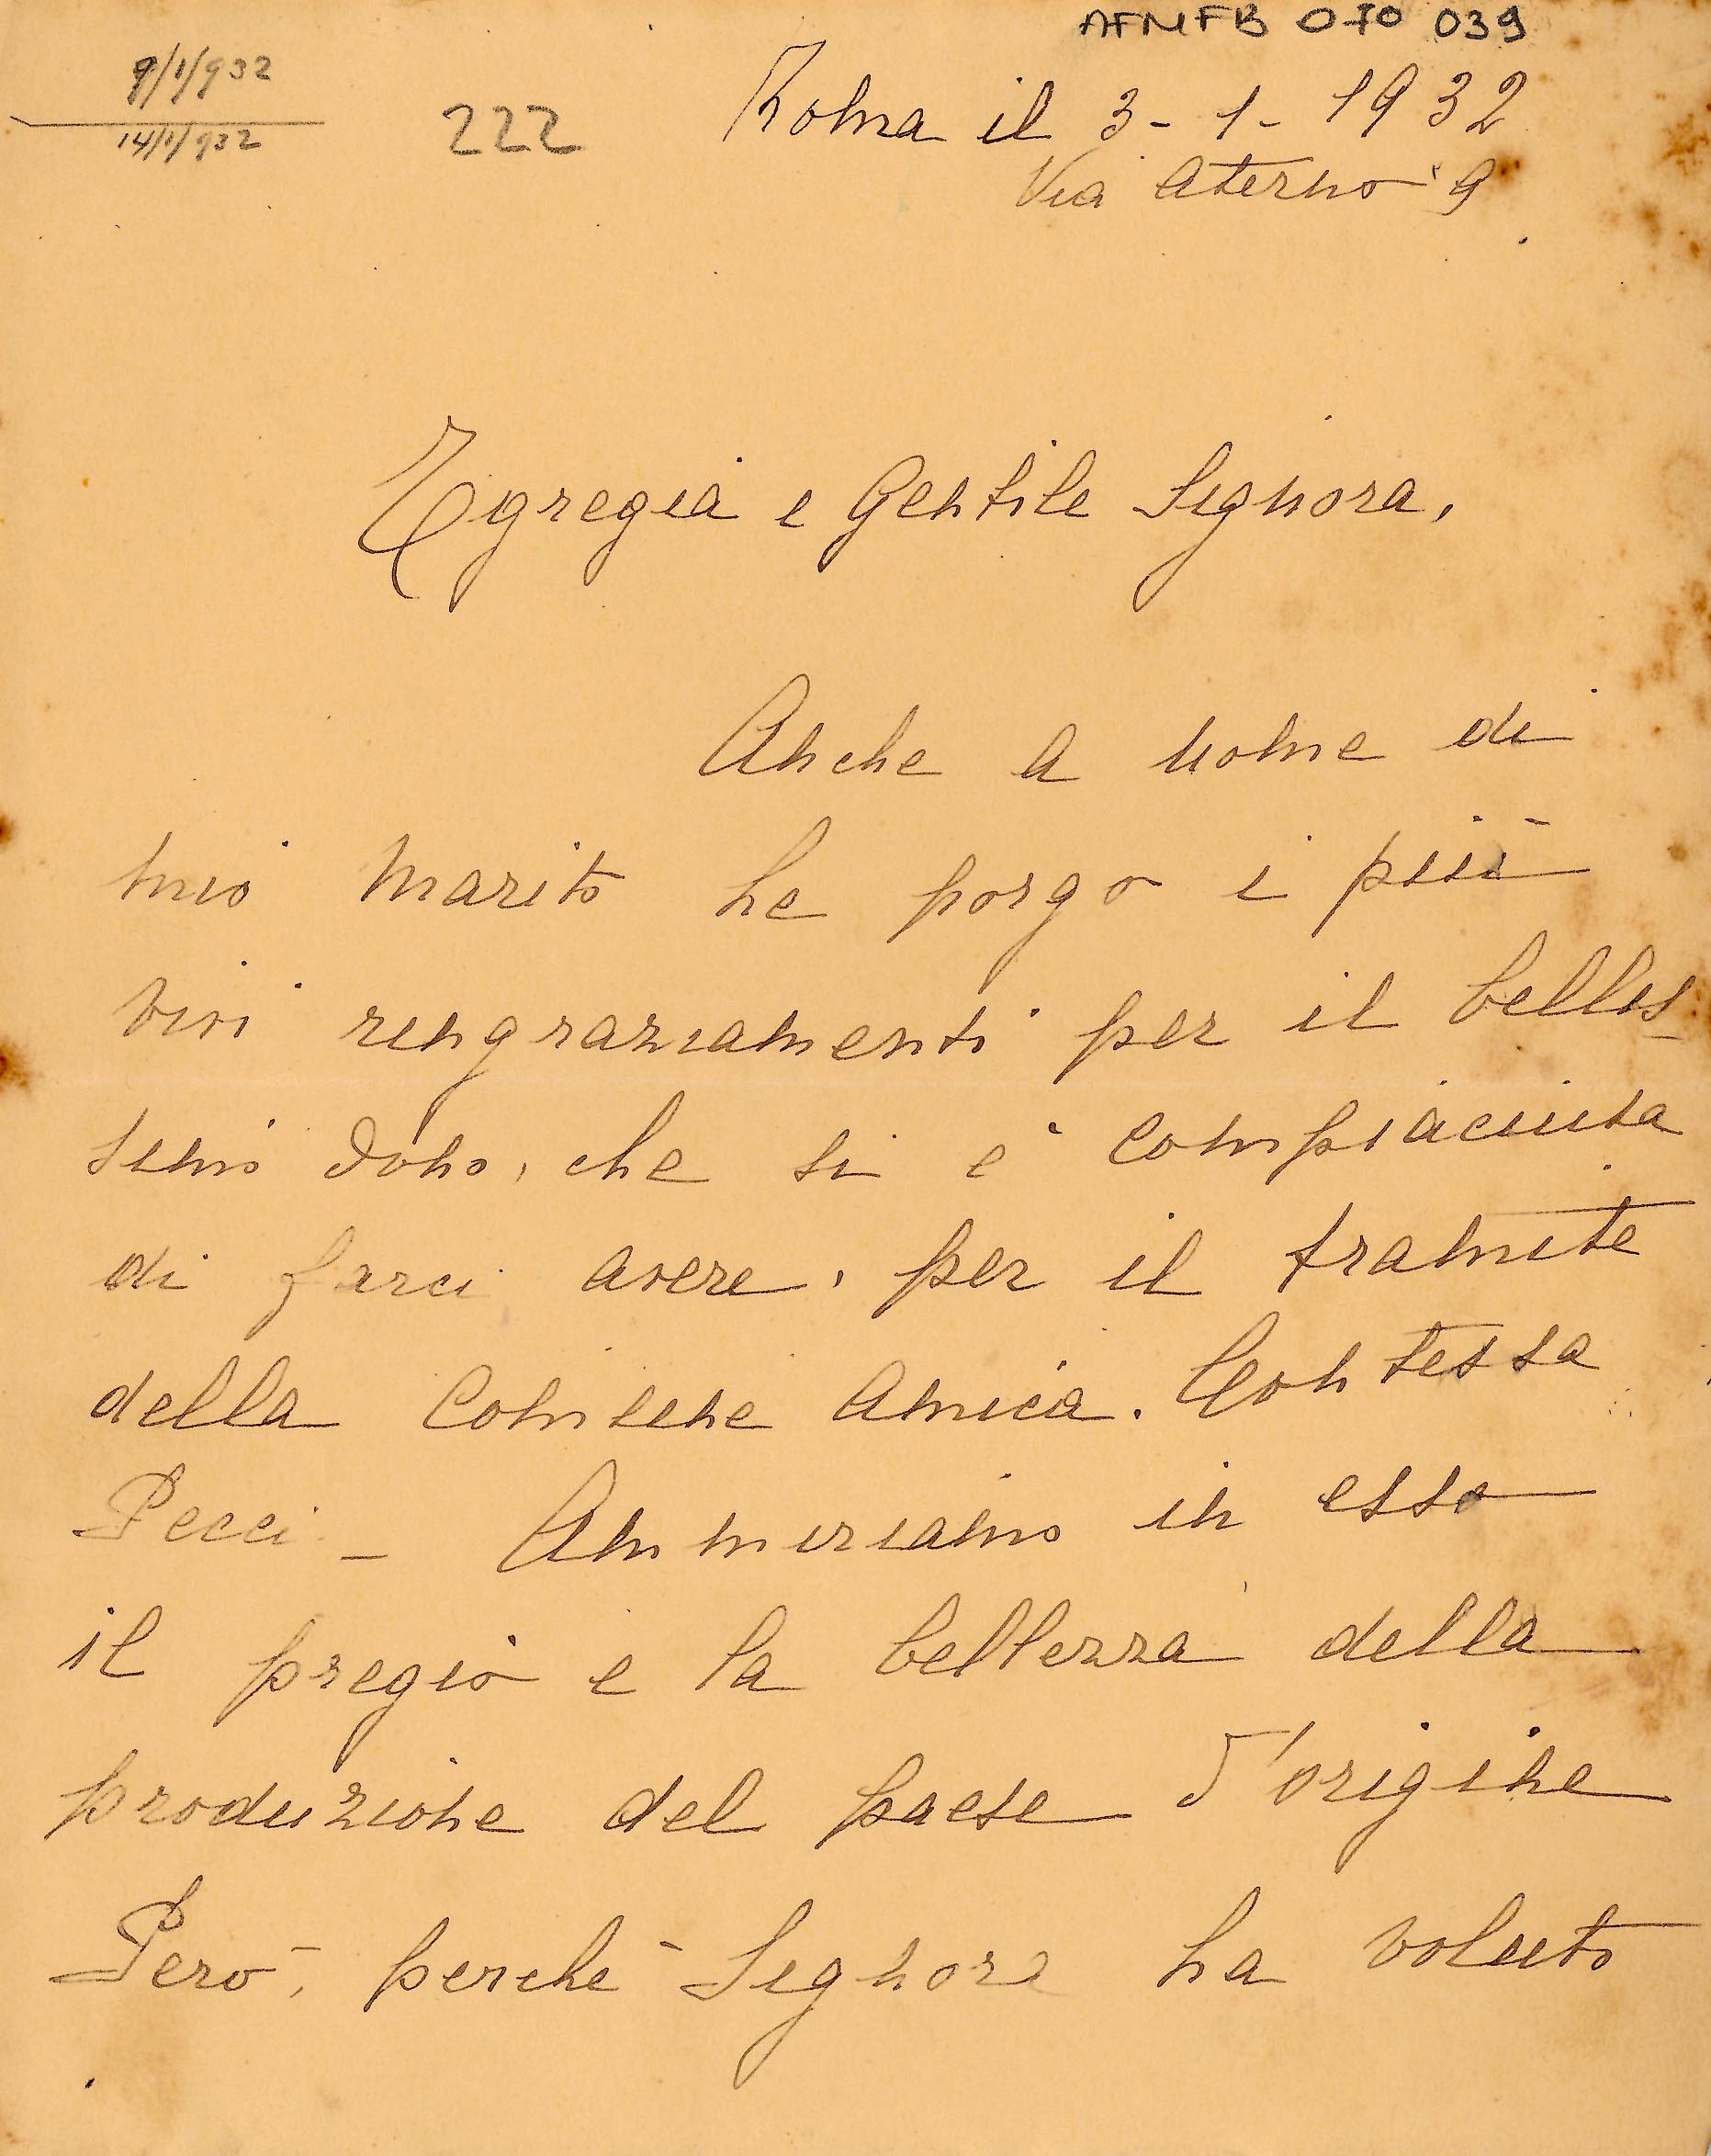 AFMFB 070 039
9/1/932
14/1/932
222
Roma il 3-1-1932
Via Aterno 9
Egregia e Gentile Signora,
Anche a nome di
mio marito le porgo i più
vivi ringraziamenti per il bellis-
simo dono, che si è compiaciuta
di farci avere, per il tramite
della comune amica. Contessa
Pecci - Ammiriamo in esso
il pregio e la bellezza della
produzione del paese d'origine
Però, perchè Signora ha voluto